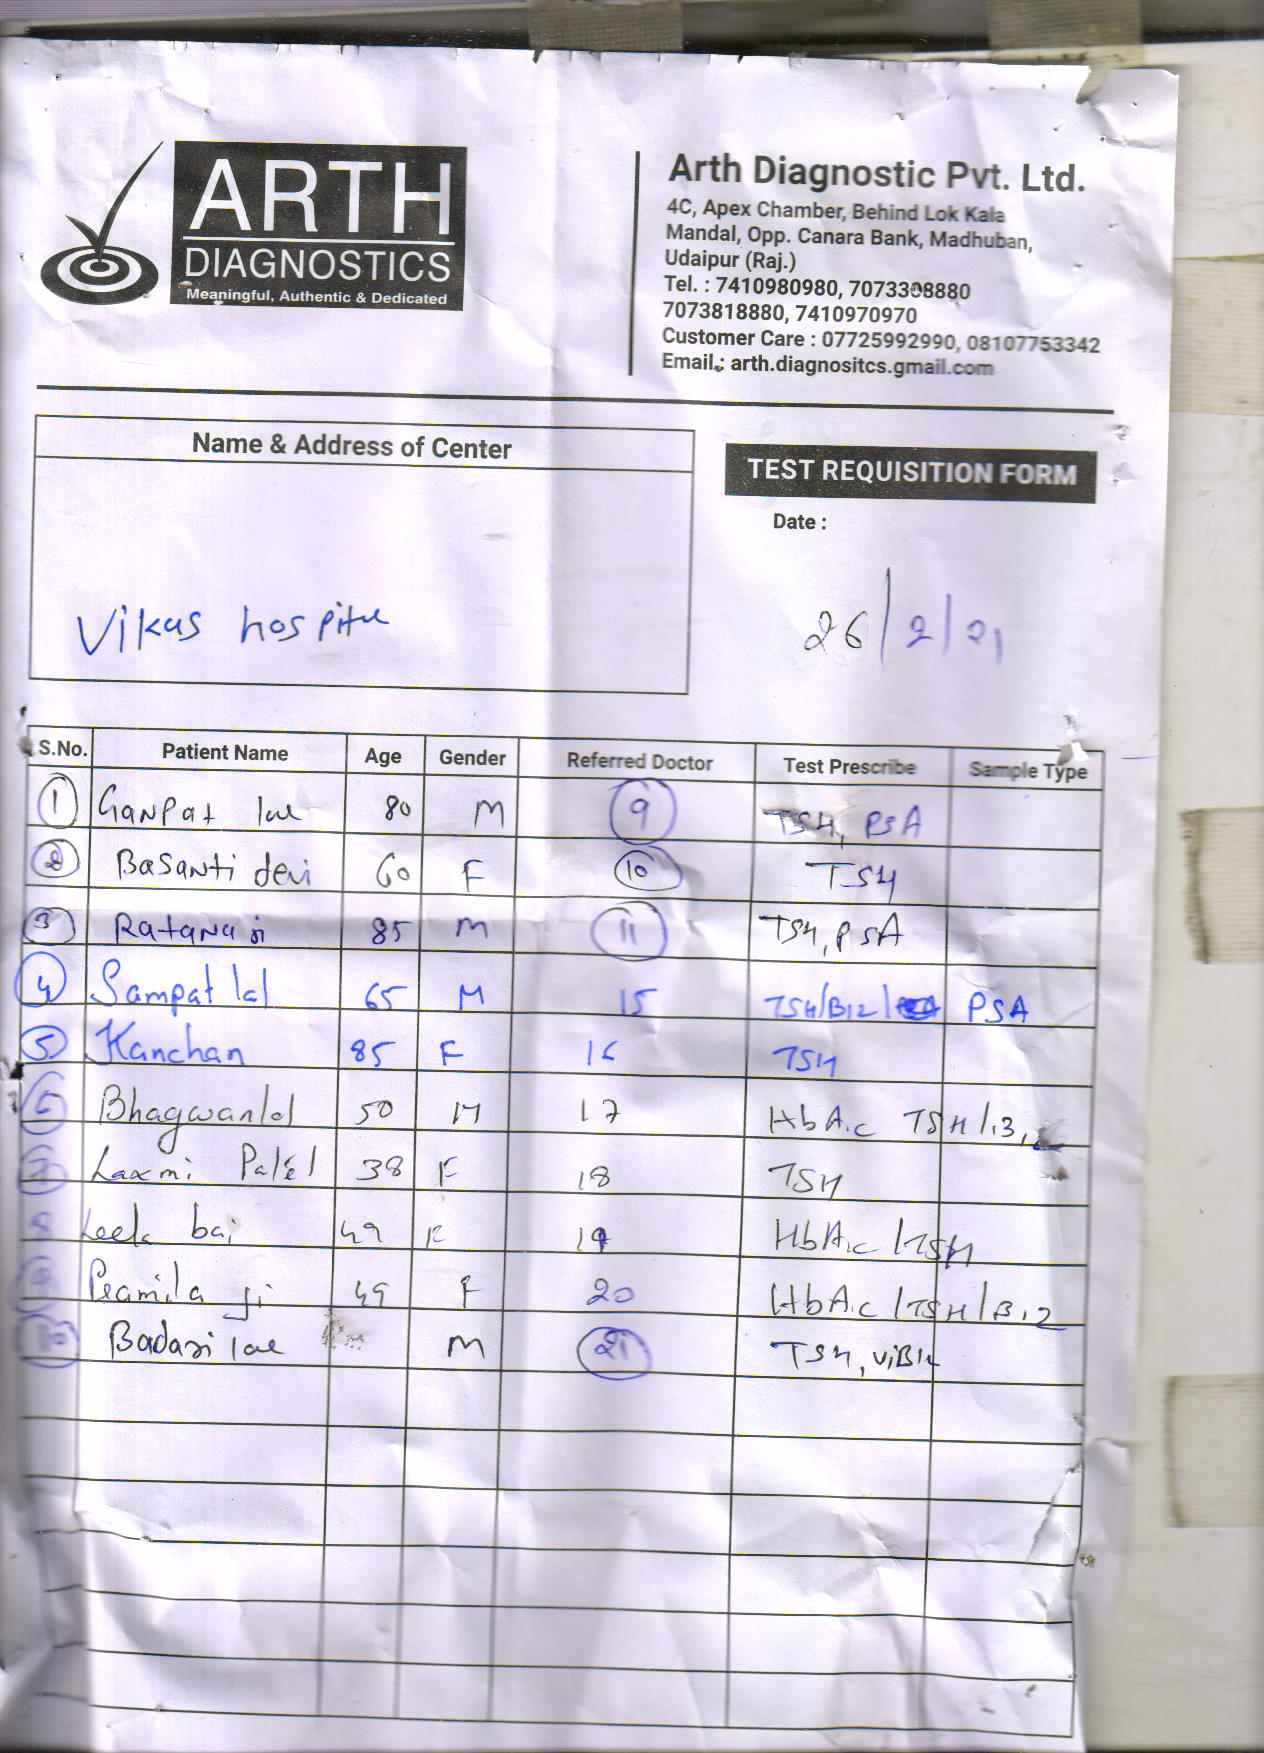 ARTH
DIAGNOSTICS
Meaningful, Authentic & Dedicated
Arth Diagnostic Pvt. Ltd.
4C, Apex Chamber, Behind Lok Kala
Mandal, Opp. Canara Bank, Madhuban,
Udaipur (Raj.)
Tel. : 7410980980, 7073308880
7073818880, 7410970970
Customer Care : 07725992990, 08107753342
Email : arth.diagnositcs.gmail.com
Name & Address of Center
TEST REQUISITION FORM
Date :
26/2/21
Vikas hospital
S.No. Patient Name Age Gender Referred Doctor Test Prescribe Sample Type
1 Ganpat lal 80 M 9 TSH, PSA
2 Basanti devi 60 F 10 TSH
3 Ratanaji 85 M 11 TSH, PSA
4 Sampat lal 65 M 15 TSH/B12/ PSA
5 Kanchan 85 F 16 TSH
6 Bhagwanlal 50 M 17 HbA1c TSH/B12
7 Laxmi Patel 38 F 18 TSH
8 Leela bai 49 F 19 HbA1c/TSH
9 Pramila ji 49 F 20 HbA1c/TSH/B12
10 Badari lal M 21 TSH, ViB12